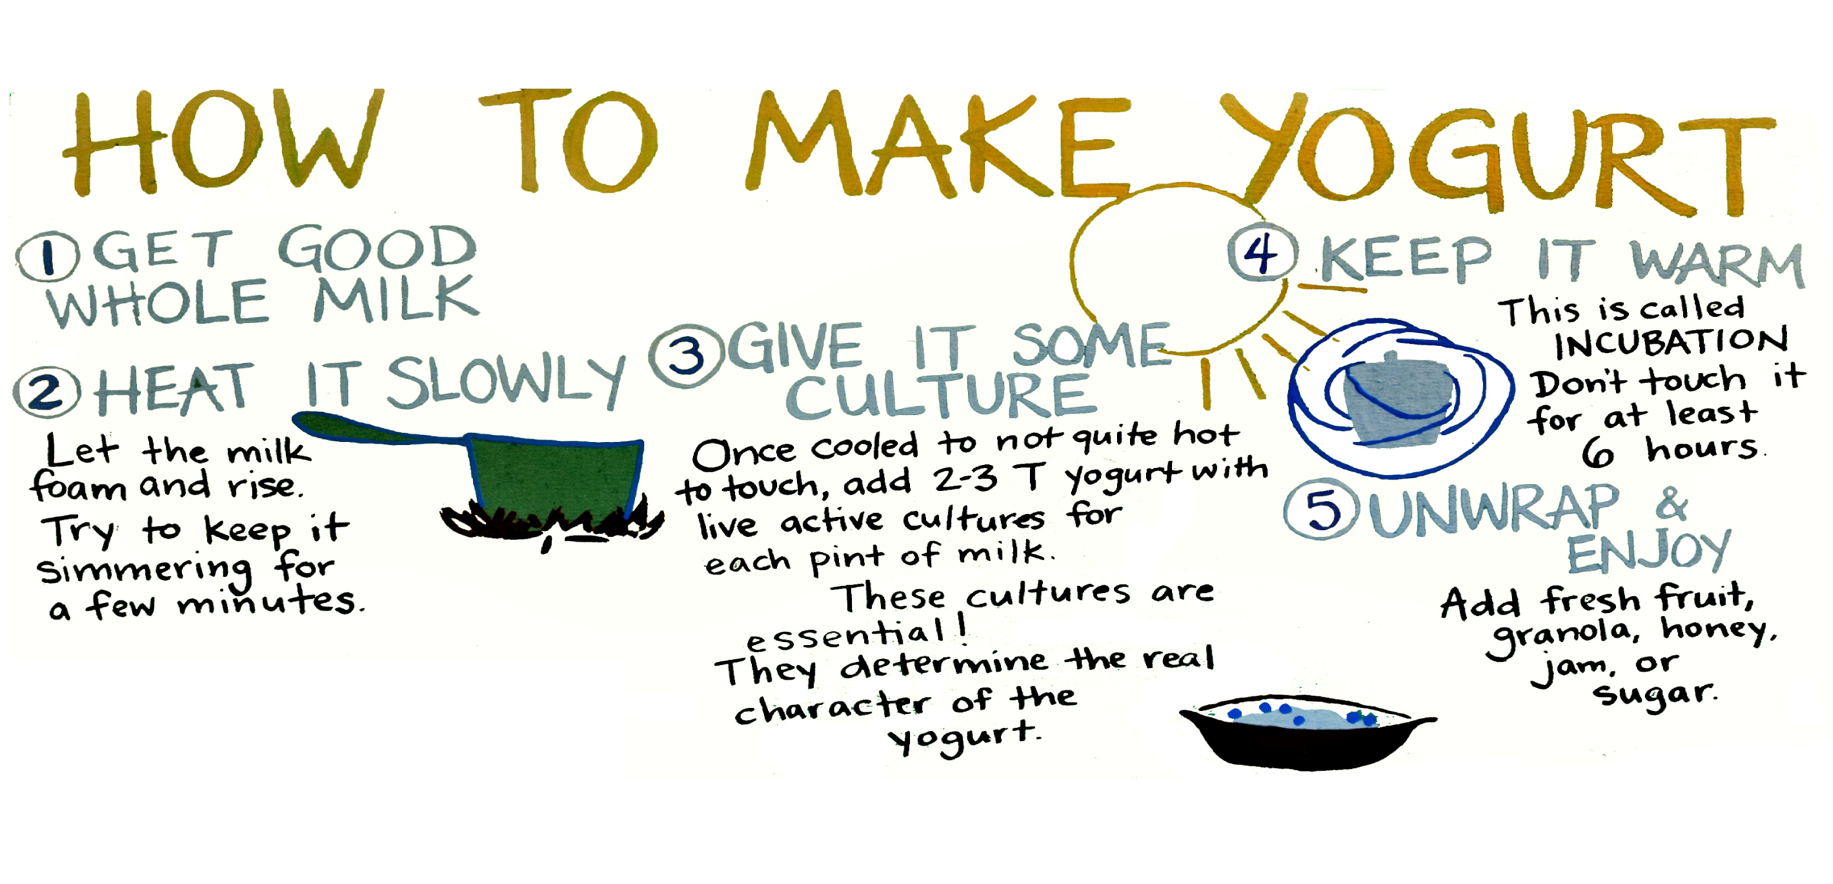 HOW TO MAKE YOGURT
1 GET GOOD
WHOLE MILK
2 HEAT IT SLOWLY
Let the milk
foam and rise.
Try to keep it
simmering for
a few minutes.
3 GIVE IT SOME
CULTURE
Once cooled to not quite hot
to touch, add 2-3 T yogurt with
live active cultures for
each pint of milk.
These cultures are
essential!
They determine the real
character of the
yogurt.
4 KEEP IT WARM
This is called
INCUBATION
Don't touch it
for at least
6 hours.
5 UNWRAP &
ENJOY
Add fresh fruit,
granola, honey,
jam, or
sugar.